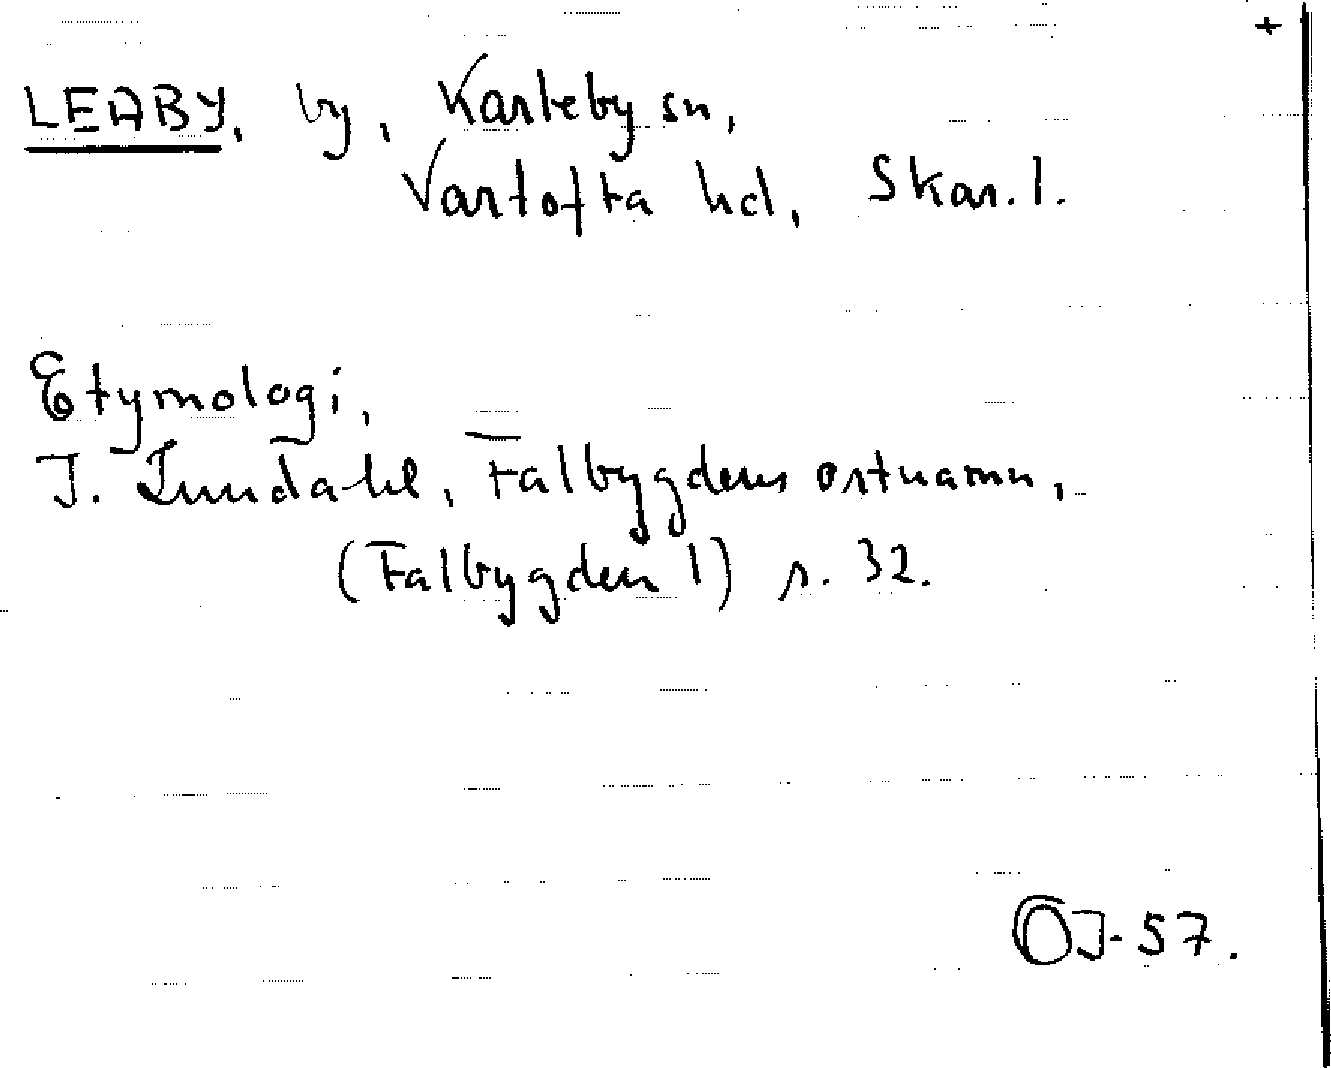 +
LEABY, by, Karleby sn,
Vartofta hd, Skar. l.
Etymologi,
I. Lundahl, Falbygdens ortnamn,
(Falbygden 1) s. 32.
OJ-57.